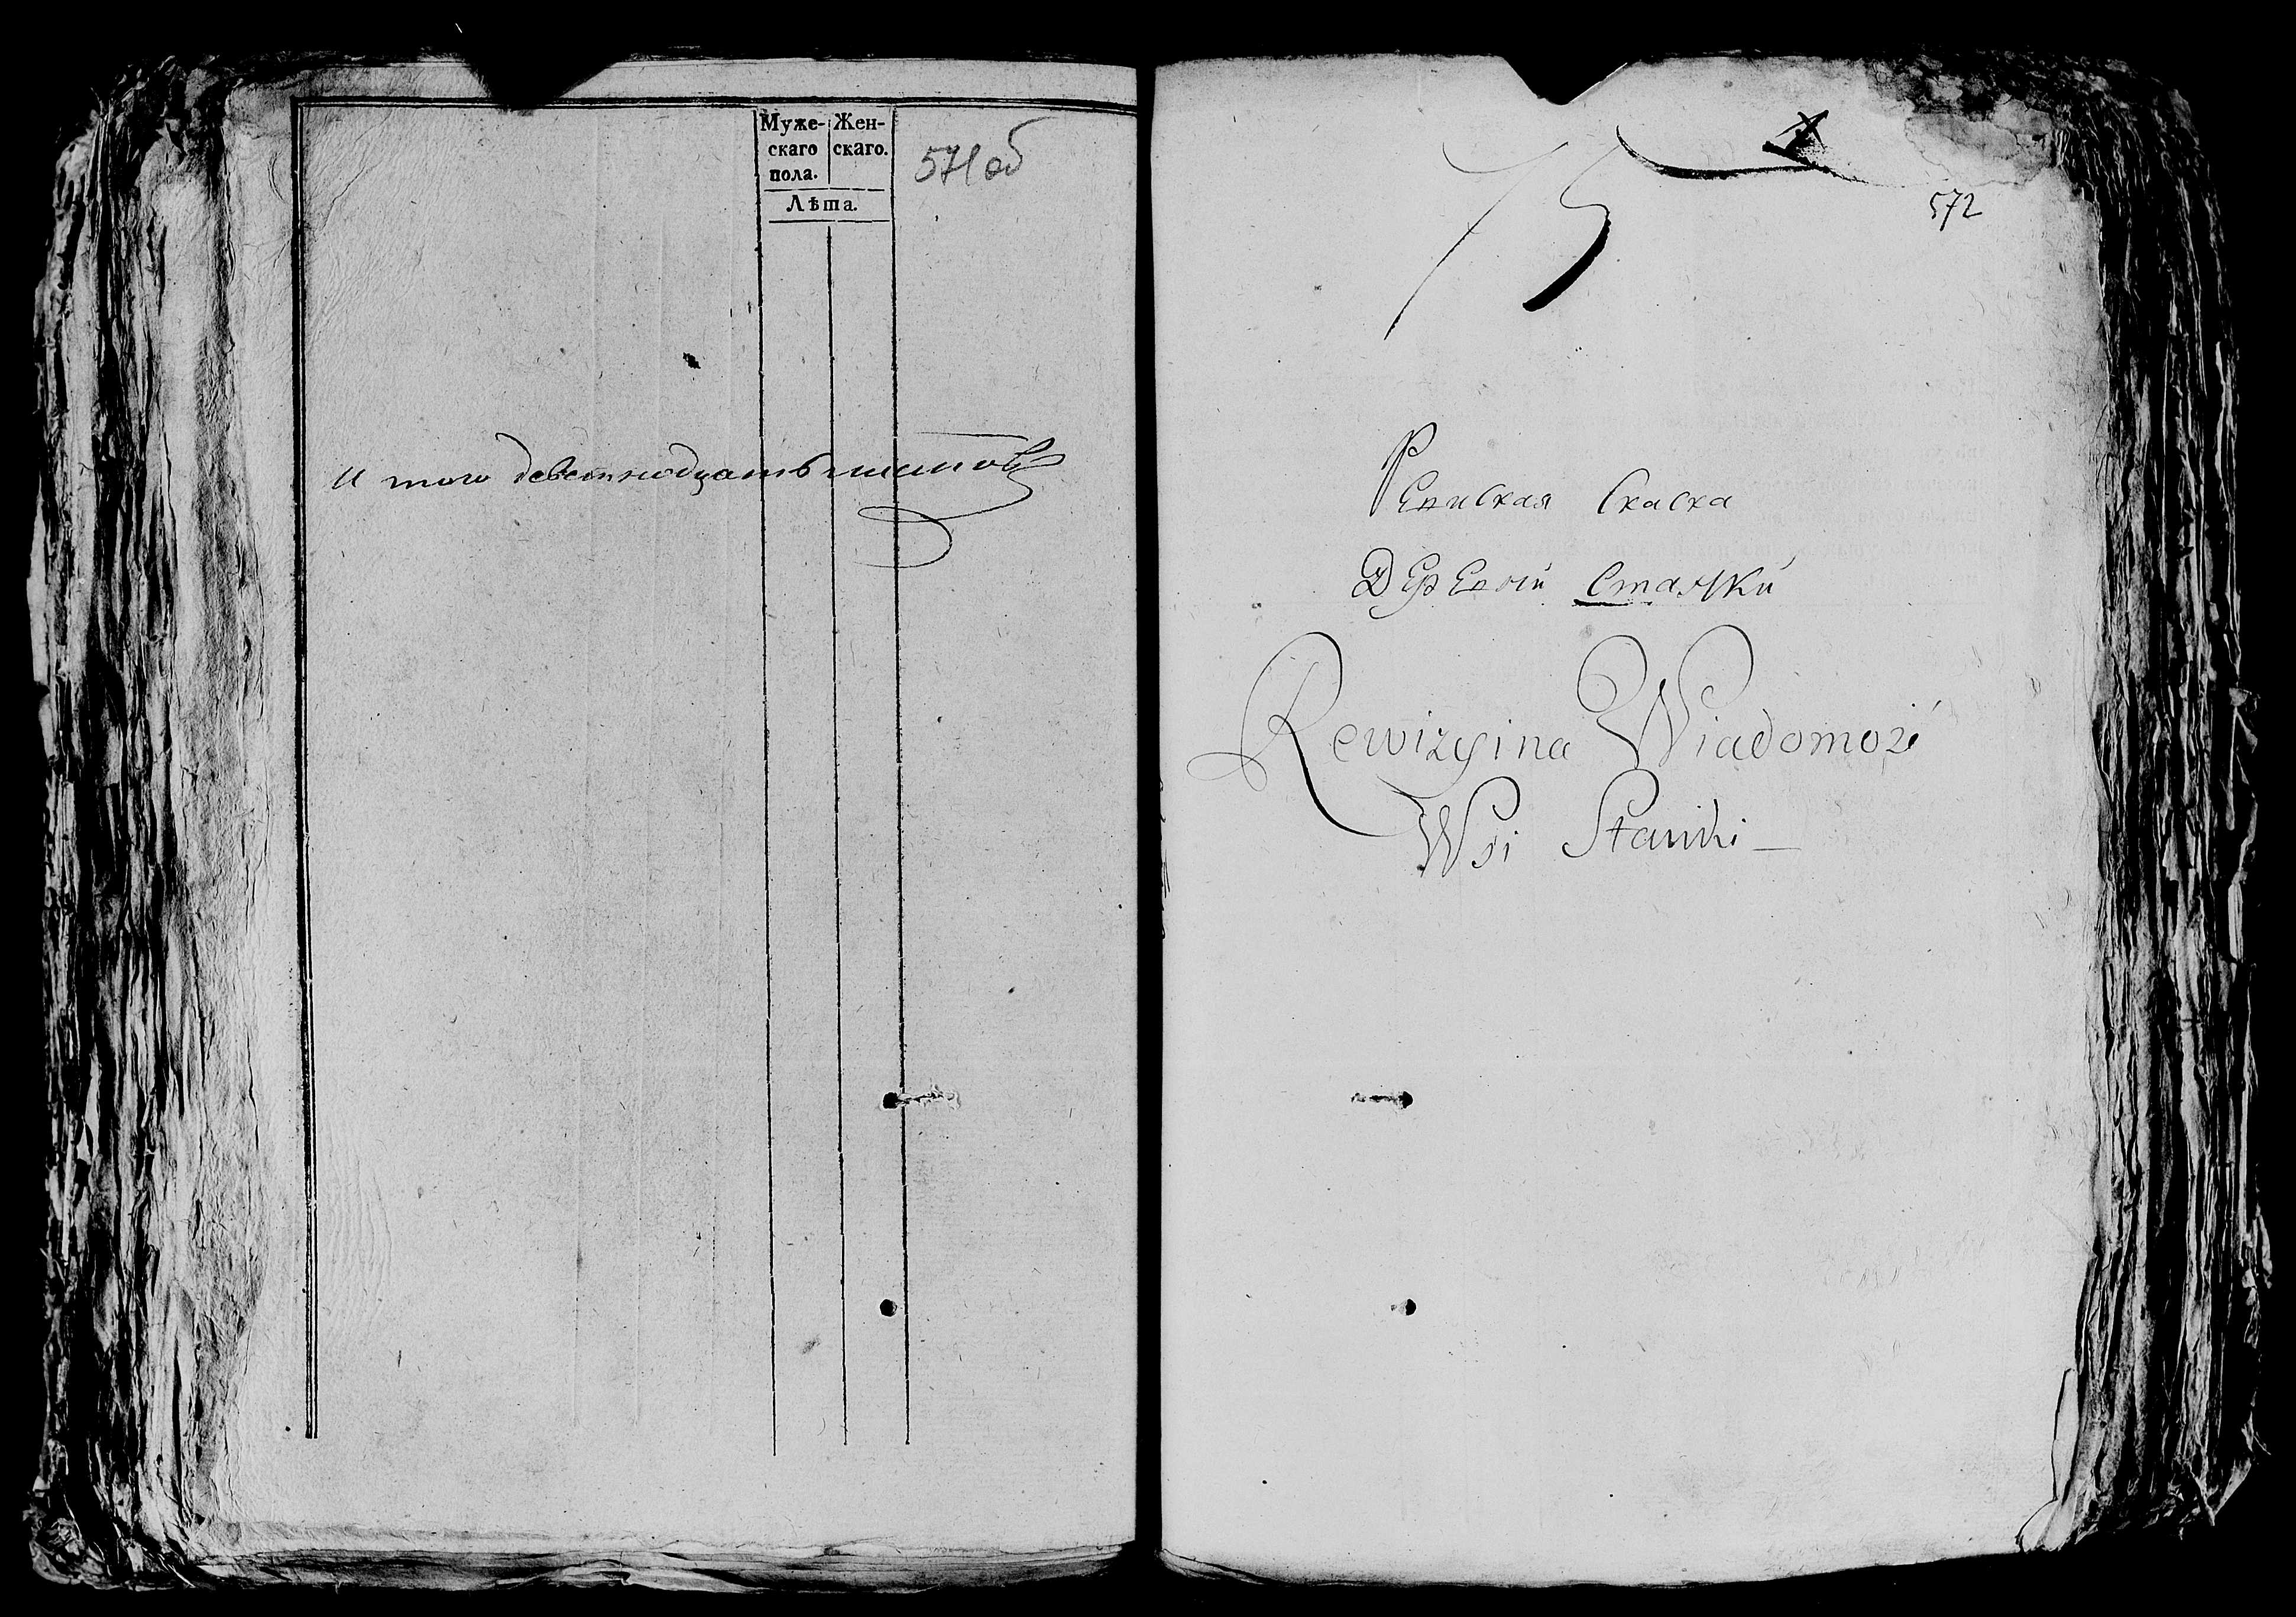 Муже- Жен-
скаго скаго.
пола.
Лѣта.
571об
И того деветнодцать листов
75
572
Ревиская Скаска
Деревни Станки
Rewizyina Wiadomość
Wsi Stanki